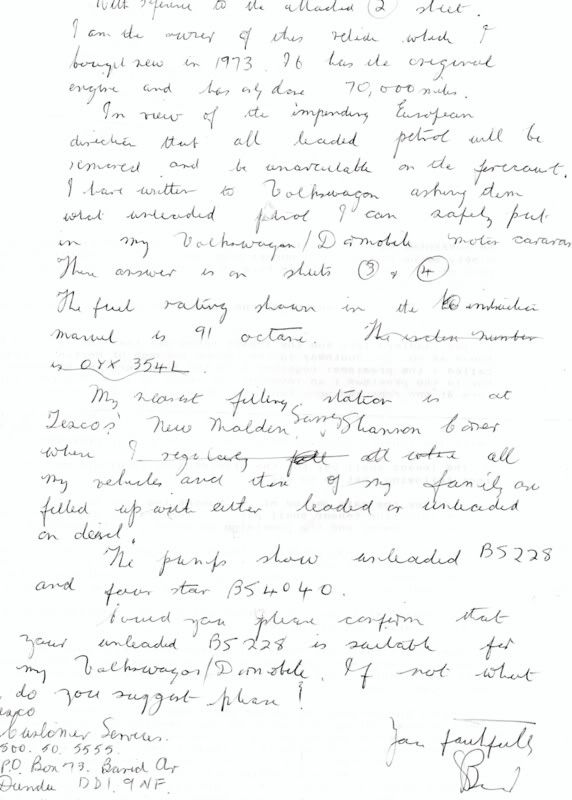 With reference to the attached 2 sheet.
I am the owner of this vehicle which I
bought new in 1973. It has the original
engine and has only done 70,000 miles.
In view of the impending European
direction that all leaded petrol will be
removed and be unavailable on the forecourt.
I have written to Volkswagon asking them
what unleaded petrol I can safely put
in my Volkswagon/Dormobile motor caravan
Their answer is on sheets 3 & 4
The fuel rating shown in the instruction
manuel is 91 octane. The number
is OYX 354L
My nearest filling station is at
Tescos' New Malden, Surrey Shannon Corner
where I regularly all
my vehicles and those of my family are
filled up with either leaded or unleaded
or diesel.
The pumps show unleaded BS228
and four star BS4040.
Could you please confirm that
your unleaded BS228 is suitable for
my Volkswagon/Dormobile. If not what
do you suggest please?
Tesco
Customer Services.
500. 50. 5555.
P.O. Box 73. Baird Av
Dundee DD1. 9NF.
Yours faithfully